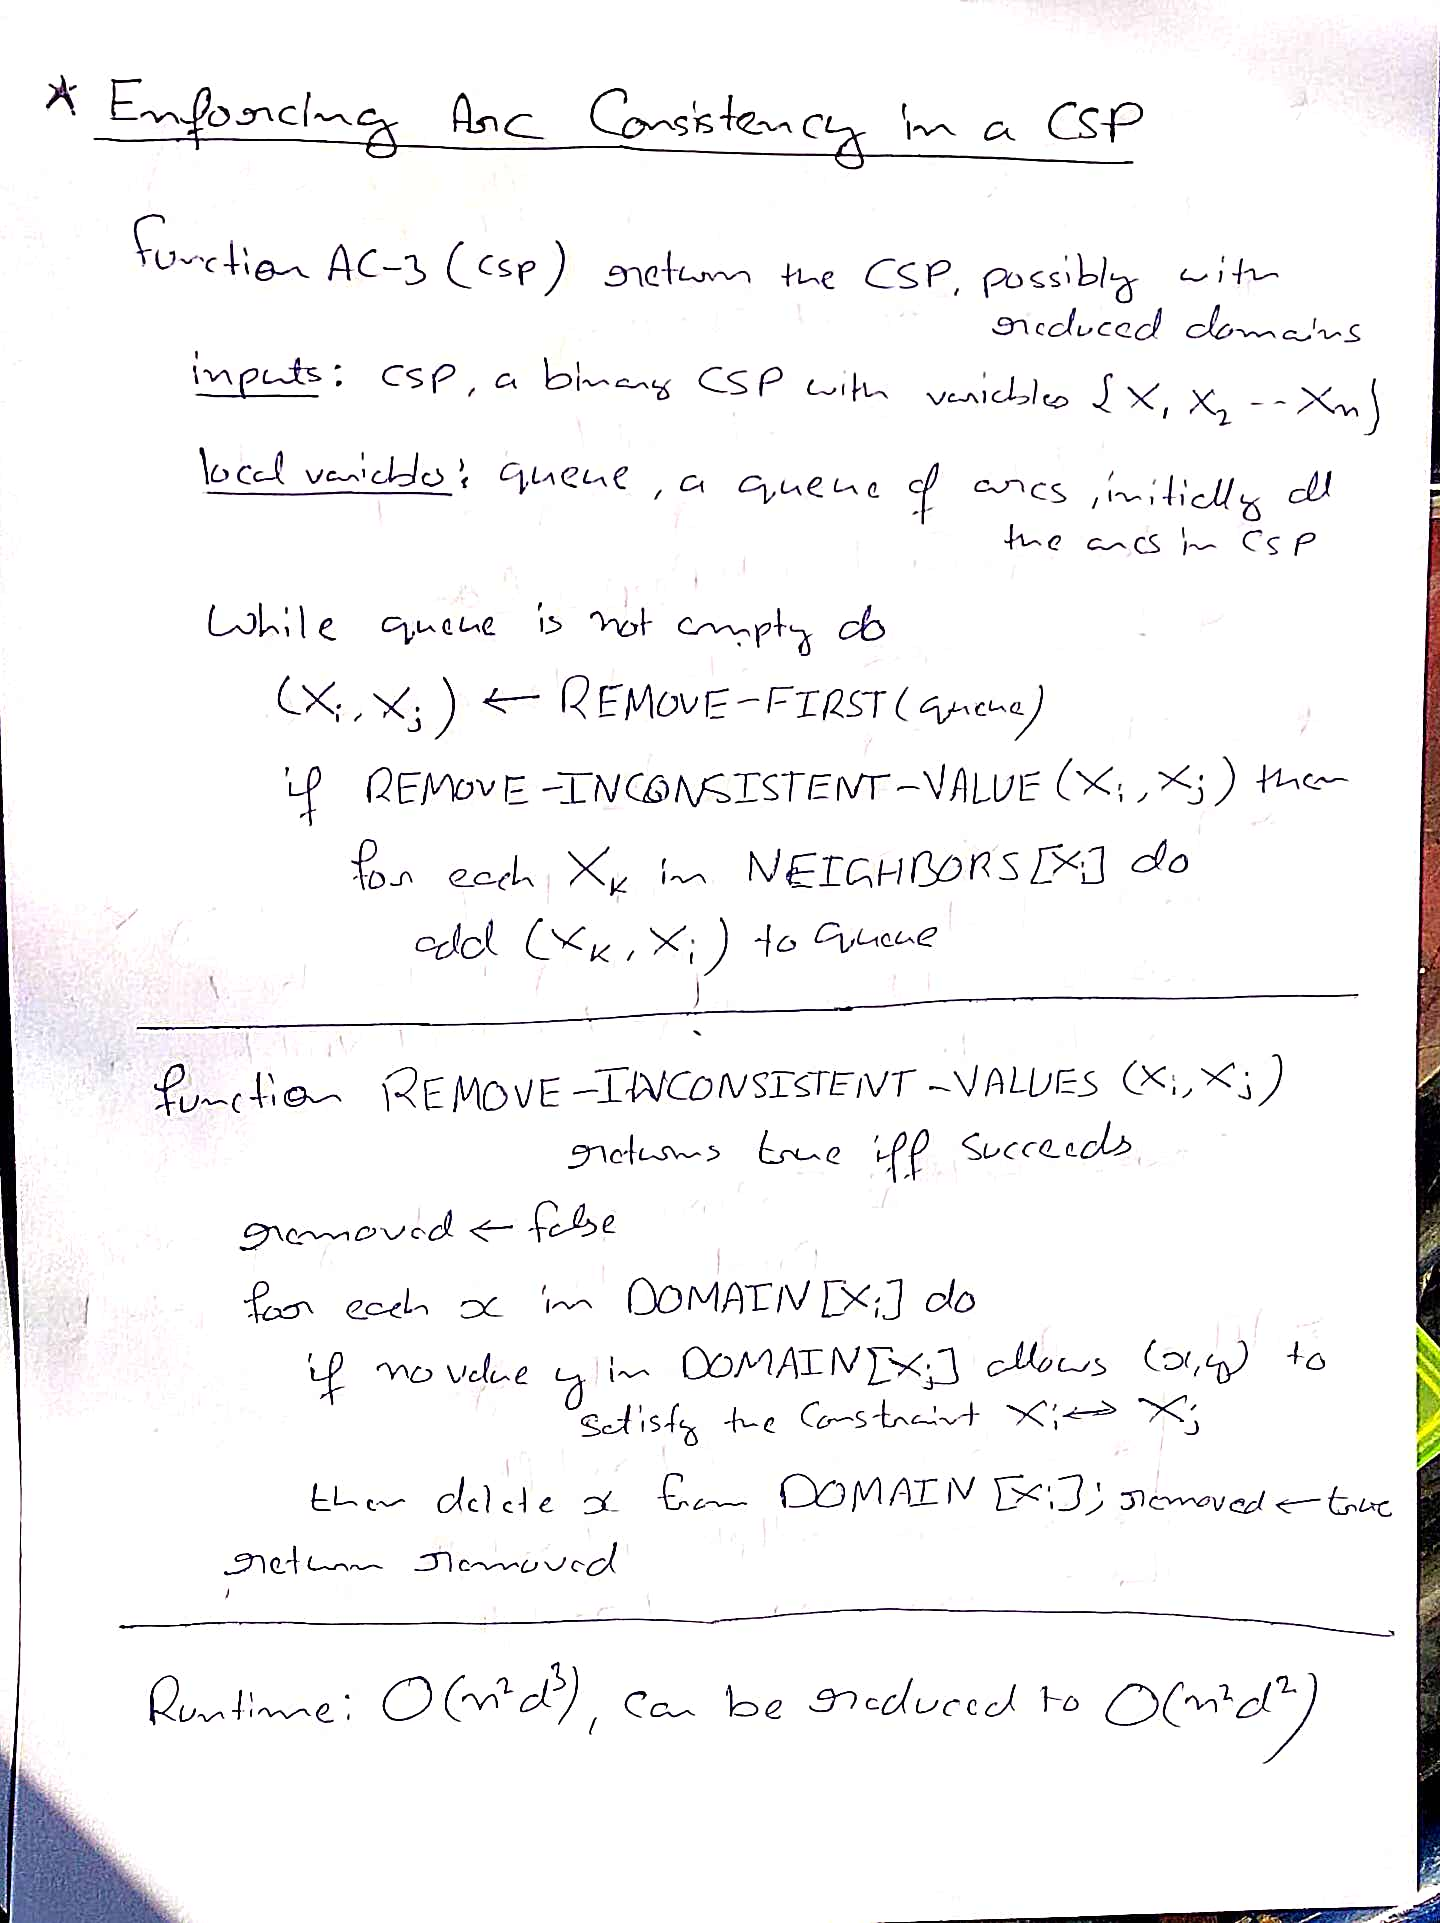 * Enforcing Arc Consistency in a CSP
function AC-3 (csp) return the CSP, possibly with
reduced domains
inputs: csp, a binary CSP with variables {X₁ X₂ -- Xn}
local variables: queue, a queue of arcs, initially all
the arcs in CSP
While queue is not empty do
(Xi, Xj) ← REMOVE-FIRST(queue)
if REMOVE-INCONSISTENT-VALUE (Xi, Xj) then
for each Xk in NEIGHBORS[Xi] do
add (Xk, Xi) to queue
function REMOVE-INCONSISTENT-VALUES (Xi, Xj)
returns true iff succeeds
removed ← false
for each x in DOMAIN[Xi] do
if no value y in DOMAIN[Xj] allows (x,y) to
satisfy the Constraint Xi ↔ Xj
then delete x from DOMAIN [Xi]; removed ← true
return removed
Runtime: O(n²d³), can be reduced to O(n²d²)